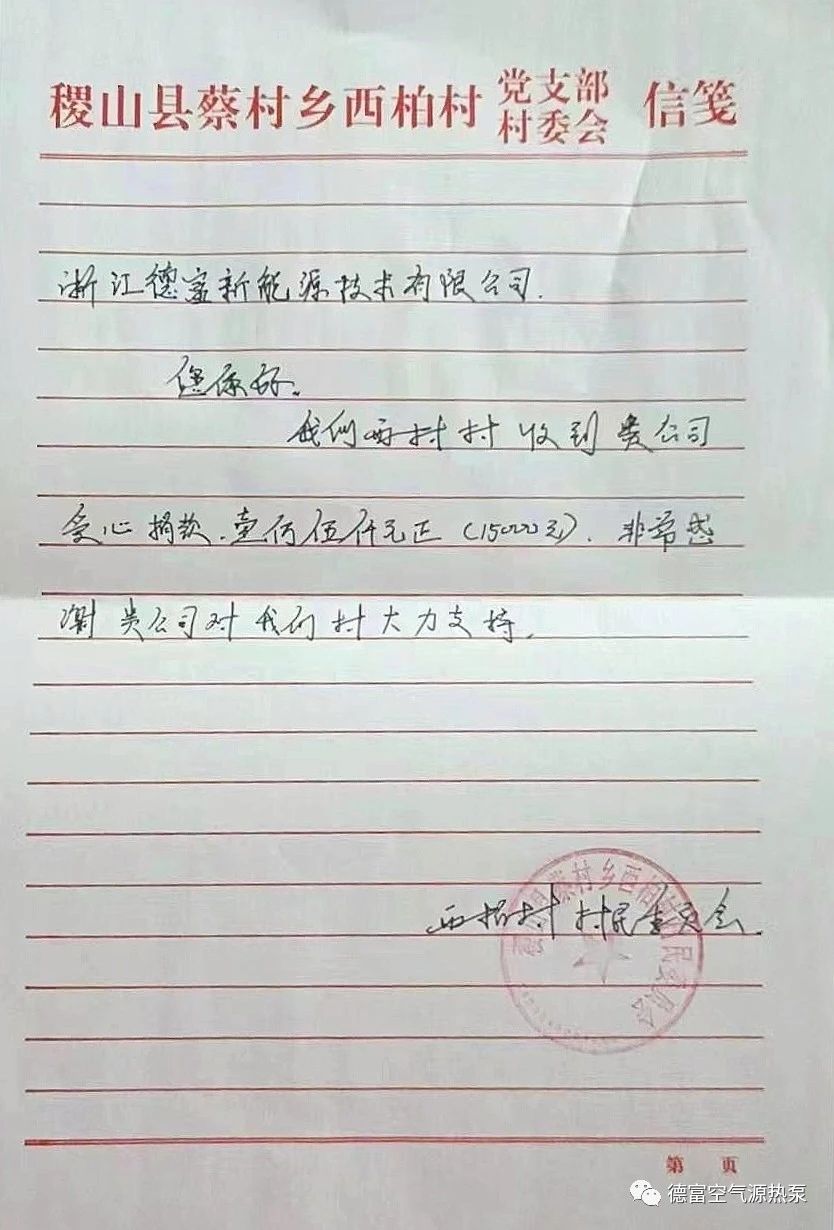 稷山县蔡村乡西柏村 党支部 信笺
村委会
浙江德富新能源技术有限公司.
您 好。
我们西村村收到贵公司
爱心捐款.壹万伍仟元正(15000元).非常感
谢贵公司对我们村大力支持.
西柏村 村民委员会.
蔡村乡西柏 民委员会
第 页
德富空气源热泵